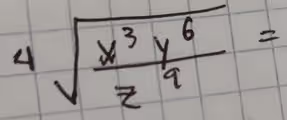 4√(x³ y⁶ / z⁹) =